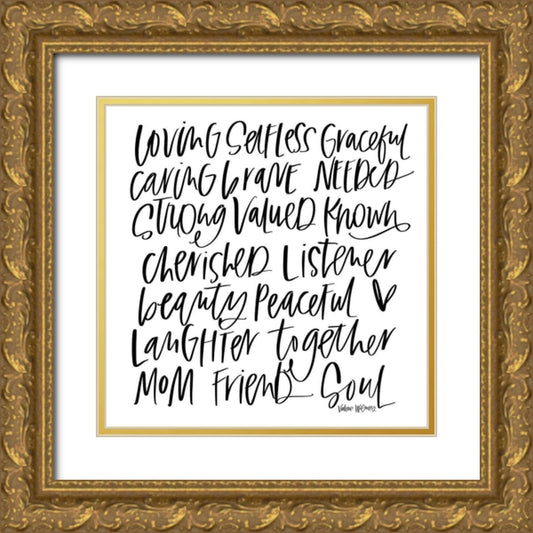 Loving Selfless Graceful
Caring brave NEEDED
Strong Valued Known
Cherished Listener
beauty Peaceful
Laughter together
MOM Friend Soul